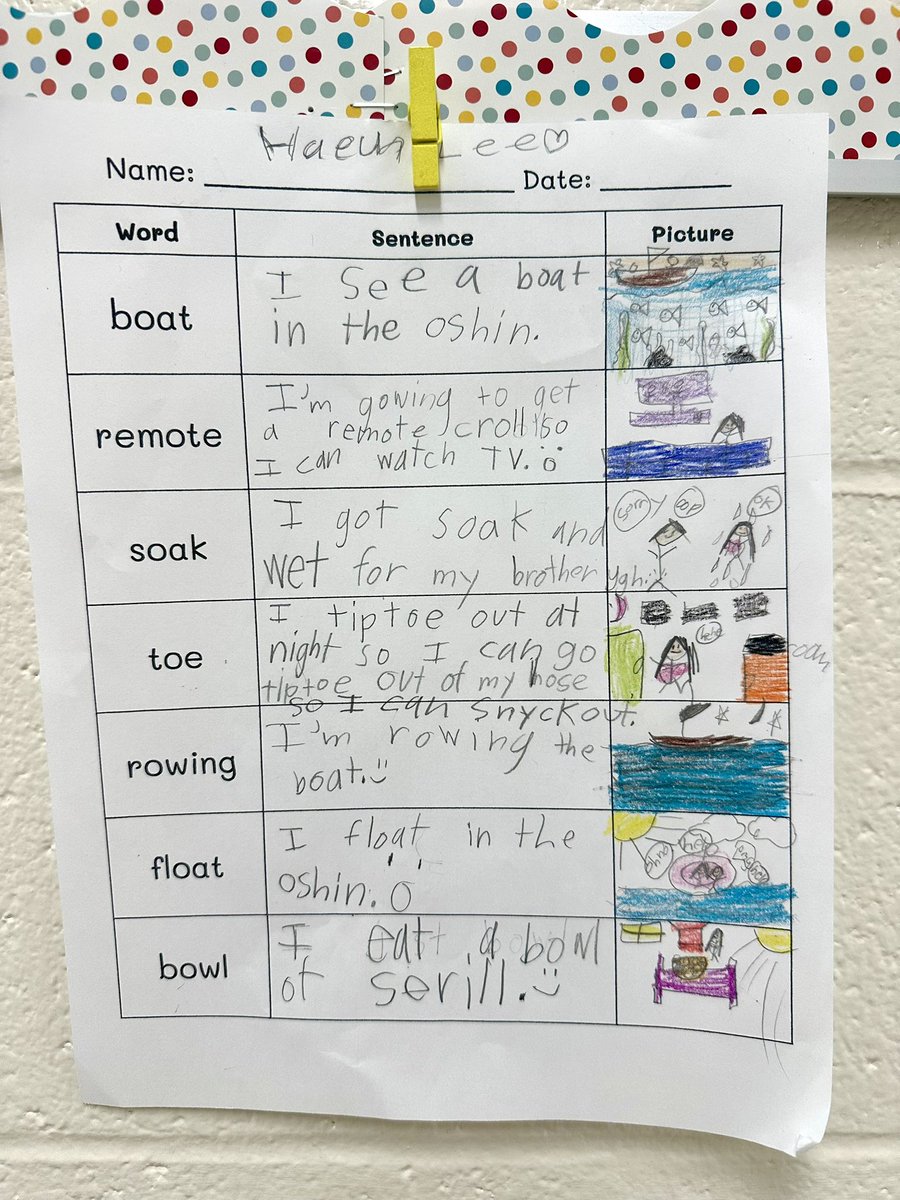 Haeun Lee♡
Name: Date:
Word Sentence Picture
boat
I see a boat
in the oshin.
remote
I'm gowing to get
a remote scroll so
I can watch TV.
soak
sorry oop OK
I got soak and
wet for my brother
toe
I tiptoe out at
night so I can go
tiptoe out of my hose
so I can snyckout.
hehe
rowing
I'm rowing the
boat.
float
I float in the
oshin.
bowl
I eat a bowl
of serill.